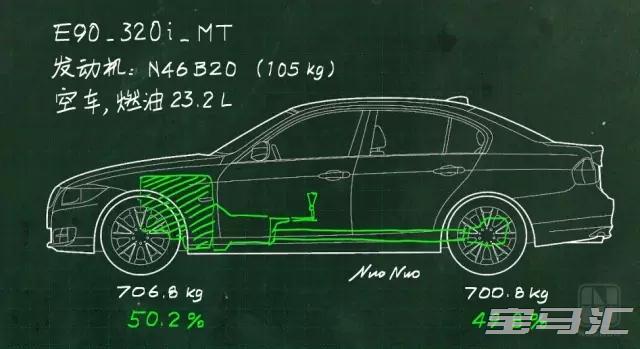 E90_320i_MT
发动机: N46B20 (105kg)
空车,燃油23.2L
Nuo Nuo
706.8kg
700.8kg
50.2%
49.8%
宝马汇